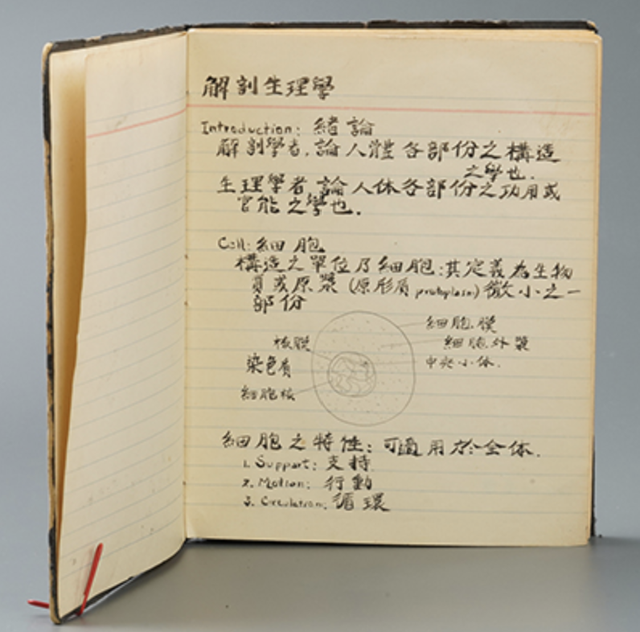 解剖生理學
Introduction: 緒論
解剖學者,論人體各部份之構造
之學也.
生理學者,論人体各部份之功用或
官能之學也.
Cell: 細胞
構造之單位乃細胞:其定義為生物
質或原漿(原形质 protoplasm)微小之一
部份
細胞膜
核膜
細胞外漿
染色質
中央小体.
細胞核
細胞之特性:可適用於全体.
1. Support: 支持
2. Motion: 行動
3. Circulation: 循環